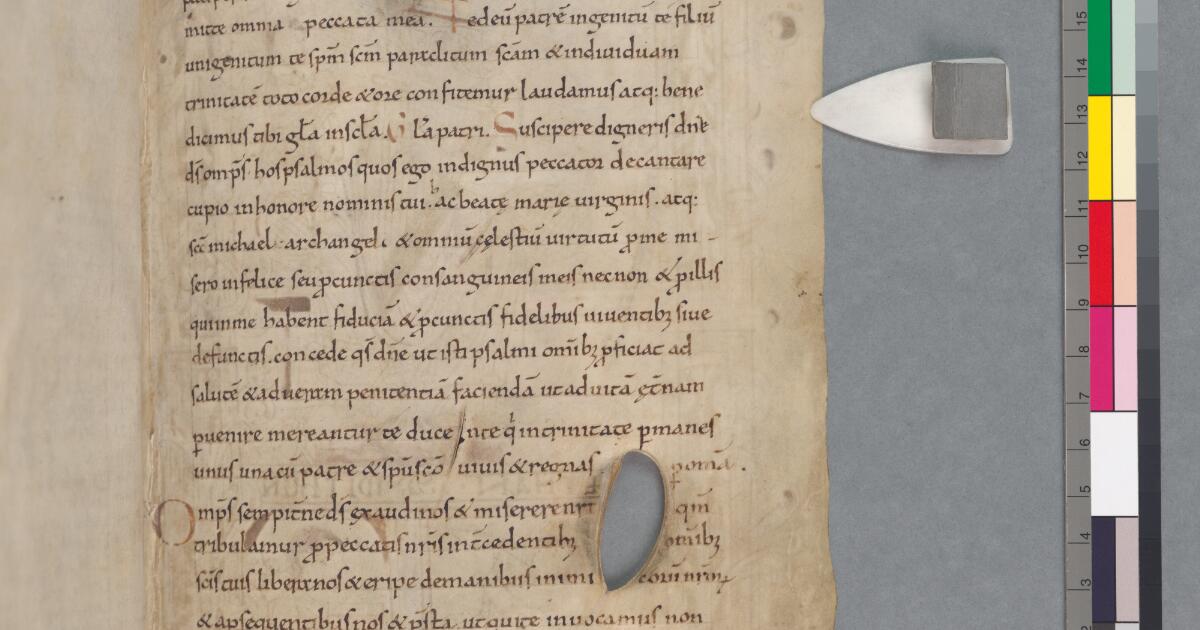 mitte omnia peccata mea. Te deū patrē ingenitū te filiū
unigenitum te spm̄ scm̄ paraclitum scām & individuam
trinitatē toto corde & ore confitemur laudamus atq: bene
dicimus tibi gl̄a in scl̄a. Gl̄a patri. Suscipere digneris dn̄e
ds̄ omps̄ hos psalmos quos ego indignus peccator decantare
cupio in honore nominis tui. ac beatę marię virginis. atq:
scī michael archangeli & omniū cęlestiū virtutū ꝓ me mi-
sero infelice seu ꝓ cunctis consanguineis meis necnon & ꝓ illis
qui in me habent fiduciā & ꝓ cunctis fidelibus viventibꝫ sive
defunctis. concede qs̄ dn̄e ut isti psalmi omībꝫ ꝓficiat ad
salutē & ad veram penitentiā faciendā ut ad vitā ęt̄nam
ꝑvenire mereantur te ducente qͥ in trinitate ꝑmanes
unus una cū patre & spū scō vivis & regnas ꝑ omīa.
Omps̄ sempit̄ne ds̄ exaudi nos & miserere nr̄i qui
tribulamur ꝓ peccatis nr̄is int̄cedentibꝫ omībꝫ
scīs tuis libera nos & eripe de manibus inimicorum nr̄orum
& a ꝑsequentibus nos & p̄sta. ut qui te invocamus non
15
14
13
12
11
10
9
8
7
6
5
4
3
2